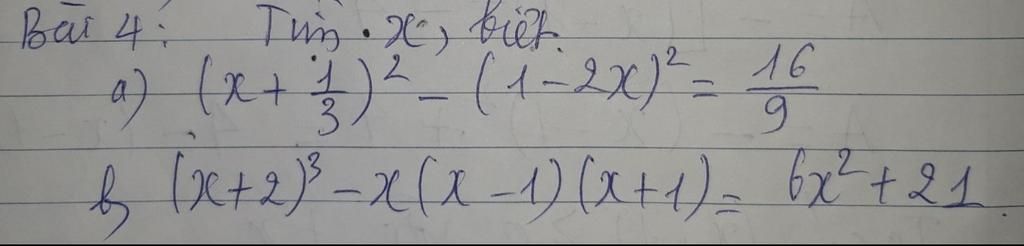 Bài 4: Tìm x, biết.
a) (x + 1/3)² - (1 - 2x)² = 16/9
b, (x+2)³ - x(x - 1)(x+1) = 6x² + 21.